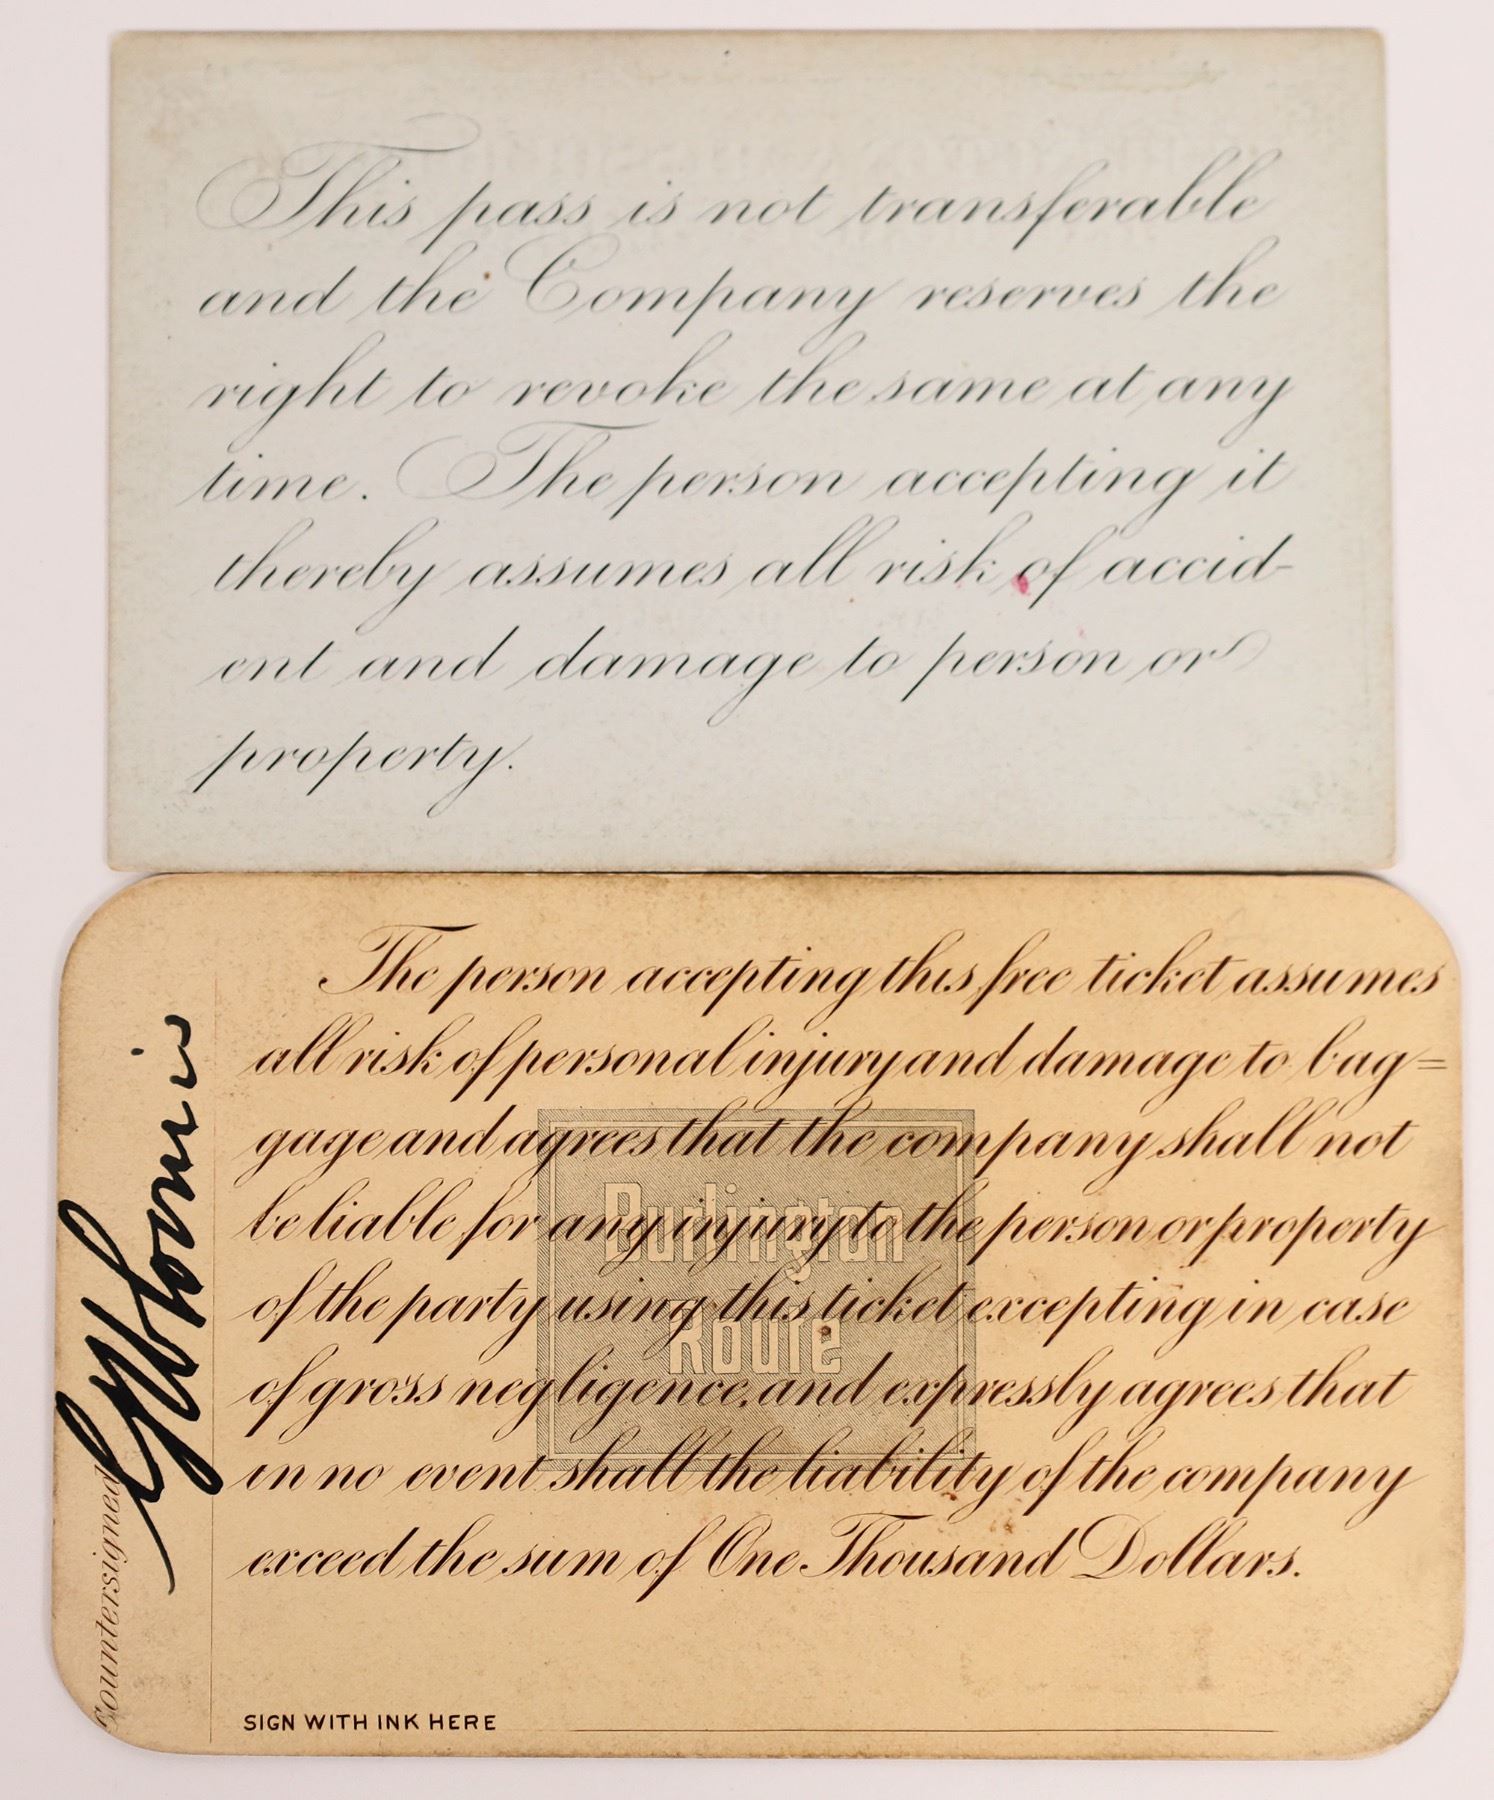 This pass is not transferable
and the Company reserves the
right to revoke the same at any
time. The person accepting it
thereby assumes all risk of accid-
ent and damage to person or
property.
The person accepting this free ticket assumes
all risk of personal injury and damage to bag=
gage and agrees that the company shall not
be liable for any injury to the person or property
of the party using this ticket excepting in case
of gross negligence, and expressly agrees that
in no event shall the liability of the company
exceed the sum of One Thousand Dollars.
Burlington
Route
Countersigned
SIGN WITH INK HERE